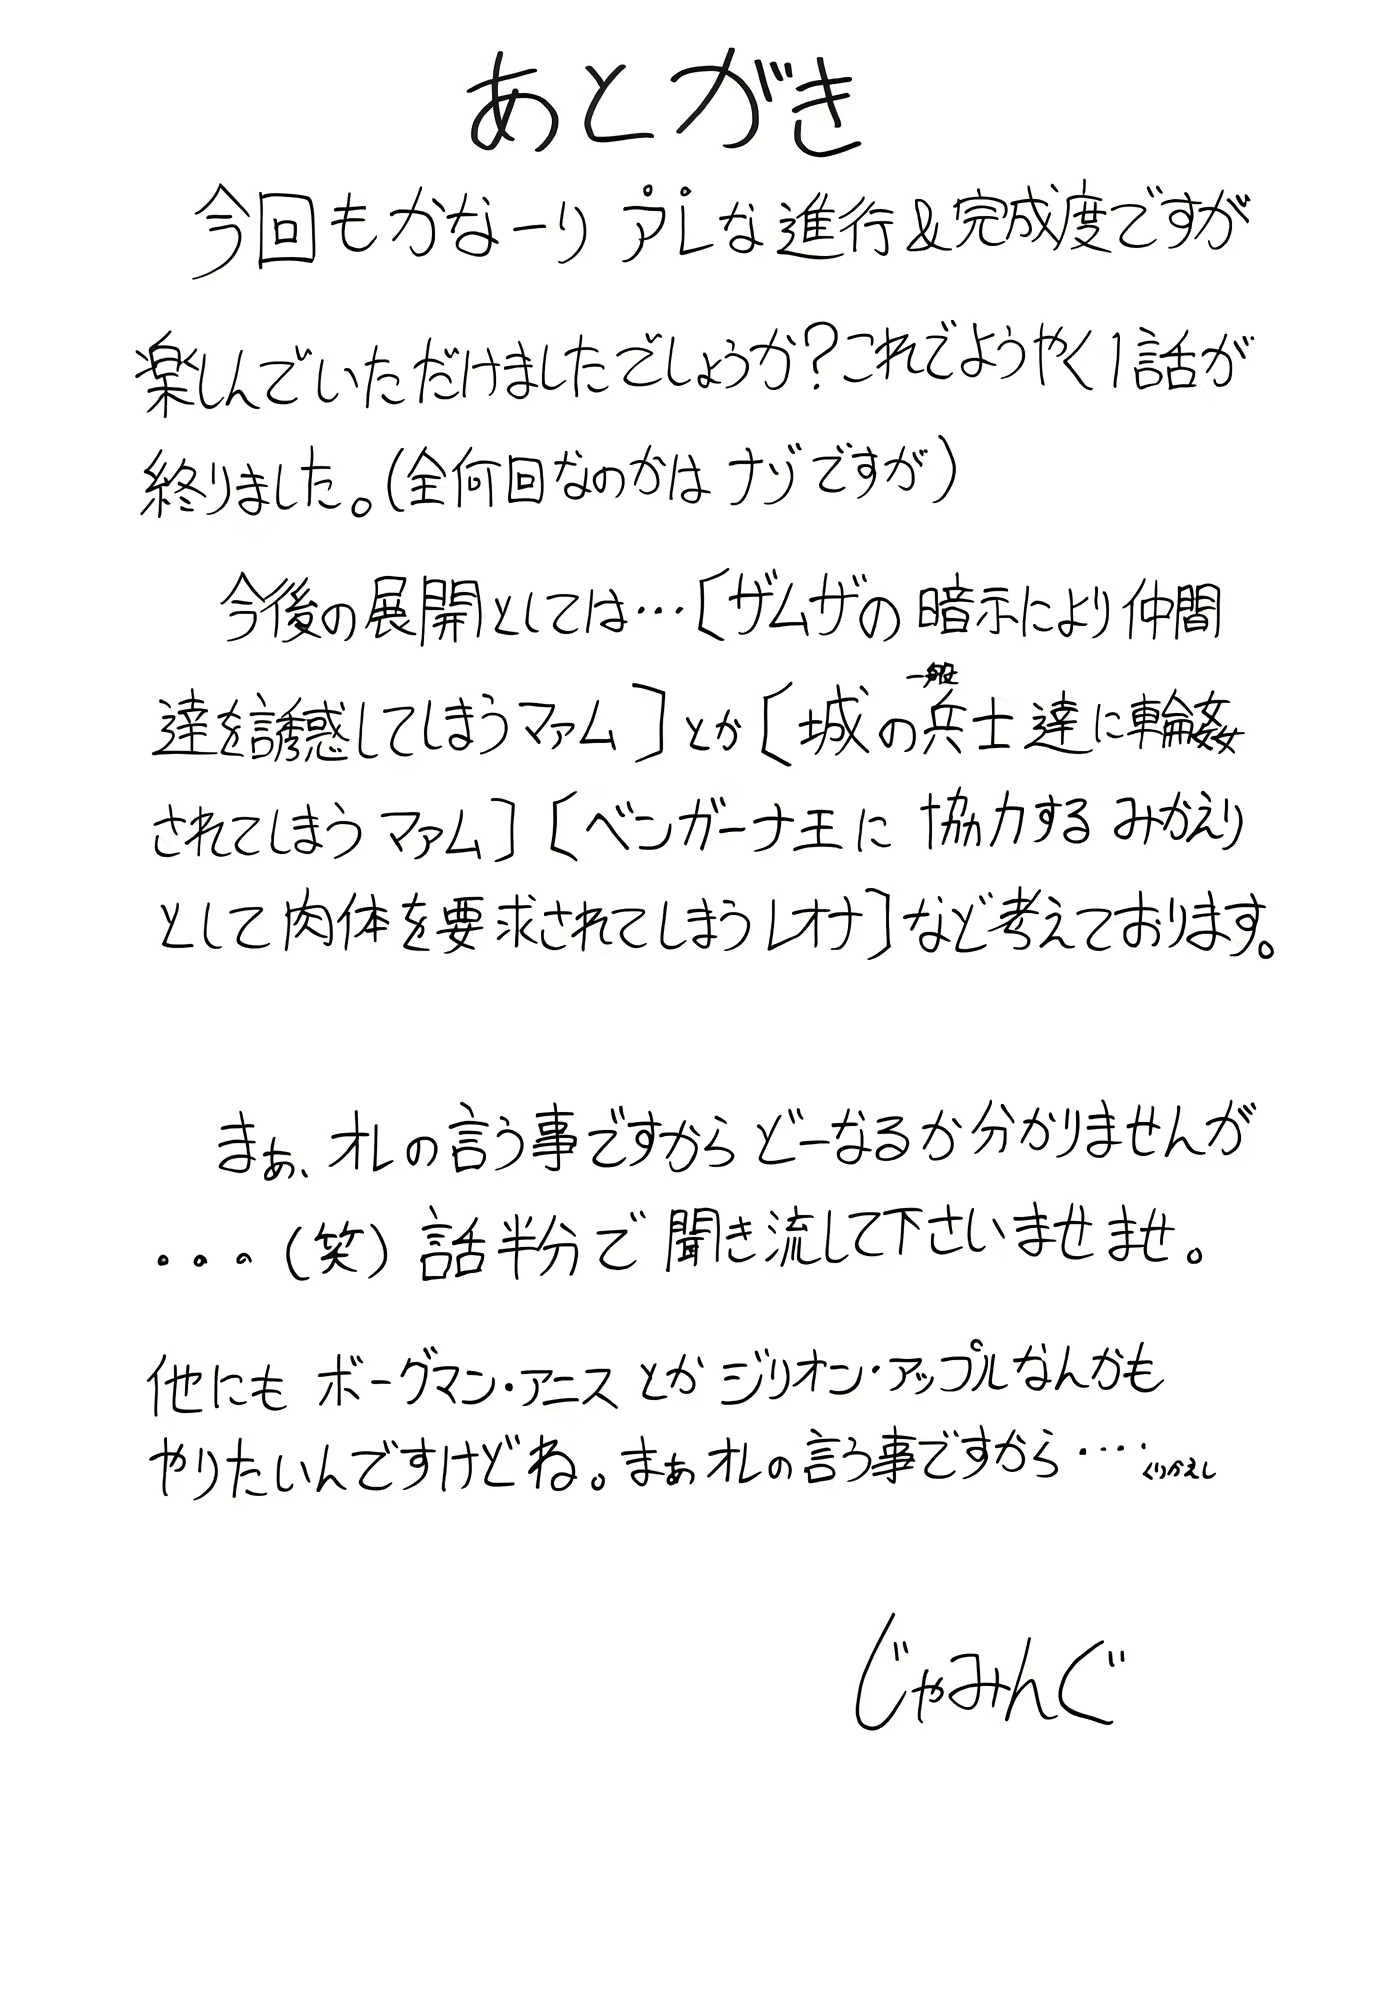 あとがき
今回もかなーり アレな進行&完成度ですが
楽しんでいただけましたでしょうか?これでようやく1話が
終りました。(全何回なのかは ナゾですが)
今後の展開としては…〔ザムザの暗示により仲間
達を誘惑してしまうマァム〕とか〔城の一般兵士達に輪姦
されてしまう マァム〕〔ベンガーナ王に 協力する みかえり
として肉体を要求されてしまうレオナ〕など考えております。
まぁ、オレの言う事ですから どーなるか分かりませんが
・・・(笑) 話半分で 聞き流して下さいませませ。
他にも ボーグマン・アニス とか ジリオン・アップルなんかも
やりたいんですけどね。まぁオレの言う事ですから・・・・くりかえし
じゃみんぐ